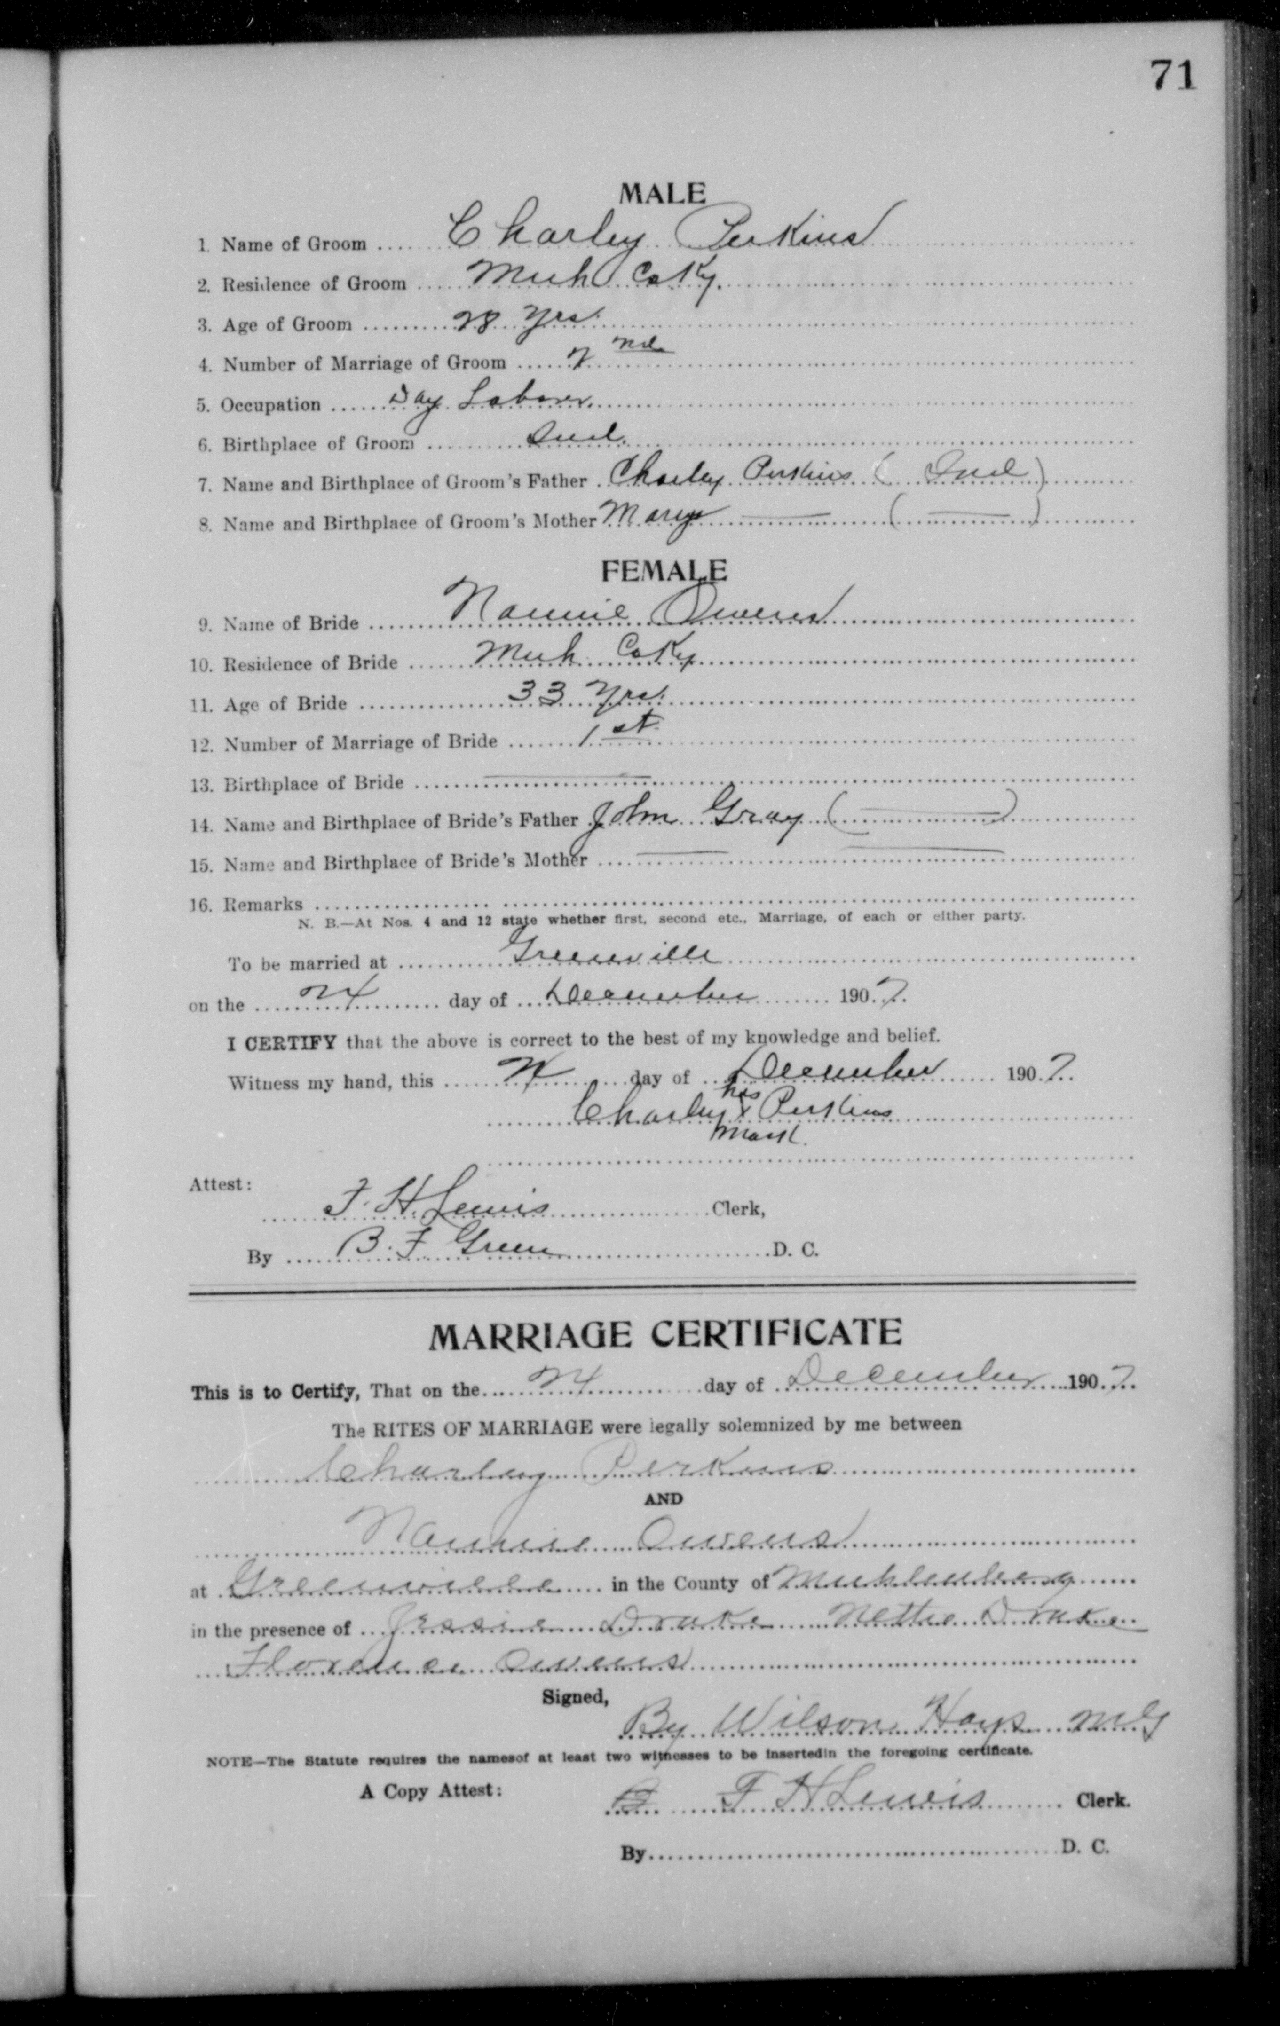 71
MALE
1. Name of Groom Charley Perkins
2. Residence of Groom Muh Co Ky.
3. Age of Groom 28 Yrs.
4. Number of Marriage of Groom 2 nd
5. Occupation Day Laborer.
6. Birthplace of Groom Ind.
7. Name and Birthplace of Groom's Father Charley Perkins ( Ind )
8. Name and Birthplace of Groom's Mother Mary — ( — )
FEMALE
9. Name of Bride Nannie Owens
10. Residence of Bride Muh Co Ky
11. Age of Bride 33 Yrs.
12. Number of Marriage of Bride 1 st
13. Birthplace of Bride —
14. Name and Birthplace of Bride's Father John Gray ( — )
15. Name and Birthplace of Bride's Mother — —
16. Remarks
N. B.—At Nos. 4 and 12 state whether first, second etc., Marriage, of each or either party.
To be married at Greenville
on the 24 day of December 1907.
I CERTIFY that the above is correct to the best of my knowledge and belief.
Witness my hand, this 24 day of December 1907.
Charley his x mark Perkins
Attest:
F. H. Lewis Clerk,
By B. F. Green D. C.
MARRIAGE CERTIFICATE
This is to Certify, That on the 24 day of December 1907.
The RITES OF MARRIAGE were legally solemnized by me between
Charley Perkins
AND
Nannie Owens
at Greenville in the County of Muhlenberg
in the presence of Jessie Drake Nettie Drake
Florence Owens
Signed,
By Wilson Hays M G
NOTE—The Statute requires the namesof at least two witnesses to be insertedin the foregoing certificate.
A Copy Attest: F H Lewis Clerk.
By D. C.